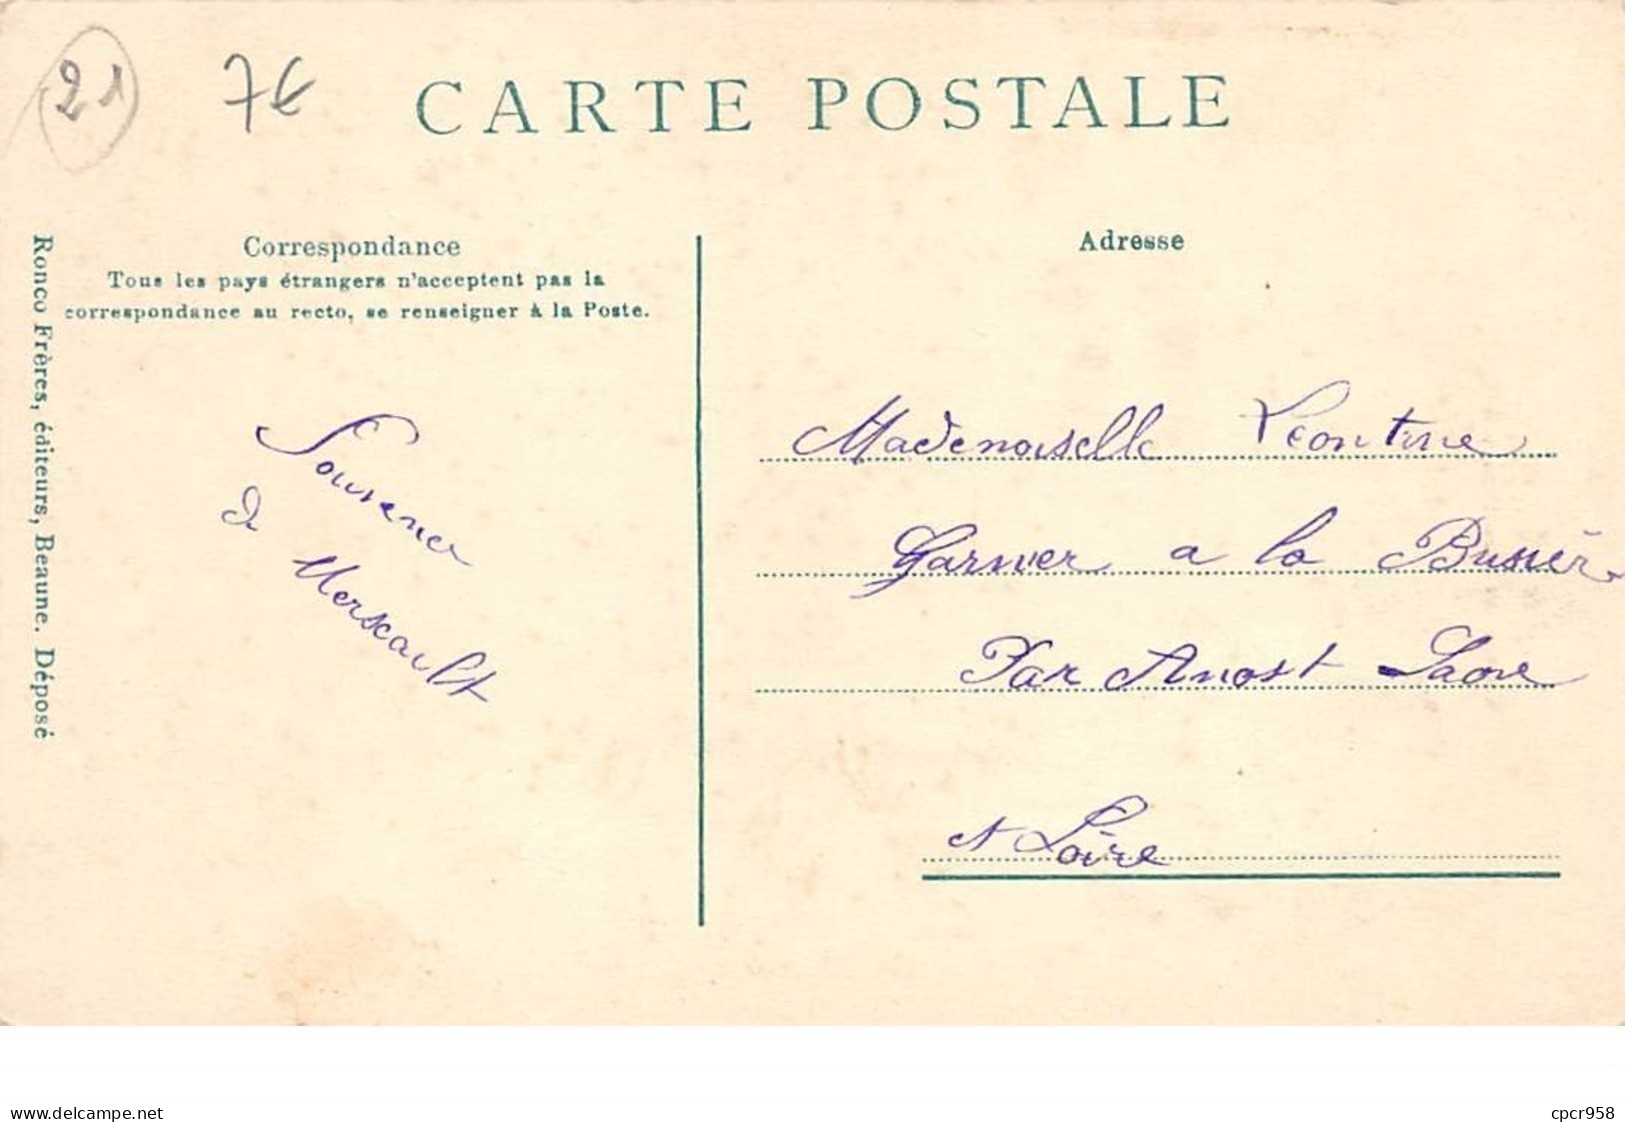 21 7€
CARTE POSTALE
Correspondance
Tous les pays étrangers n'acceptent pas la
correspondance au recto, se renseigner à la Poste.
Adresse
Ronco Frères, éditeurs, Beaune. Déposé
Souvenir
de Mersault
Mademoiselle Léontine
Garnier a la Bussière
Par Anost Saone
et Loire
www.delcampe.net
cpcr958